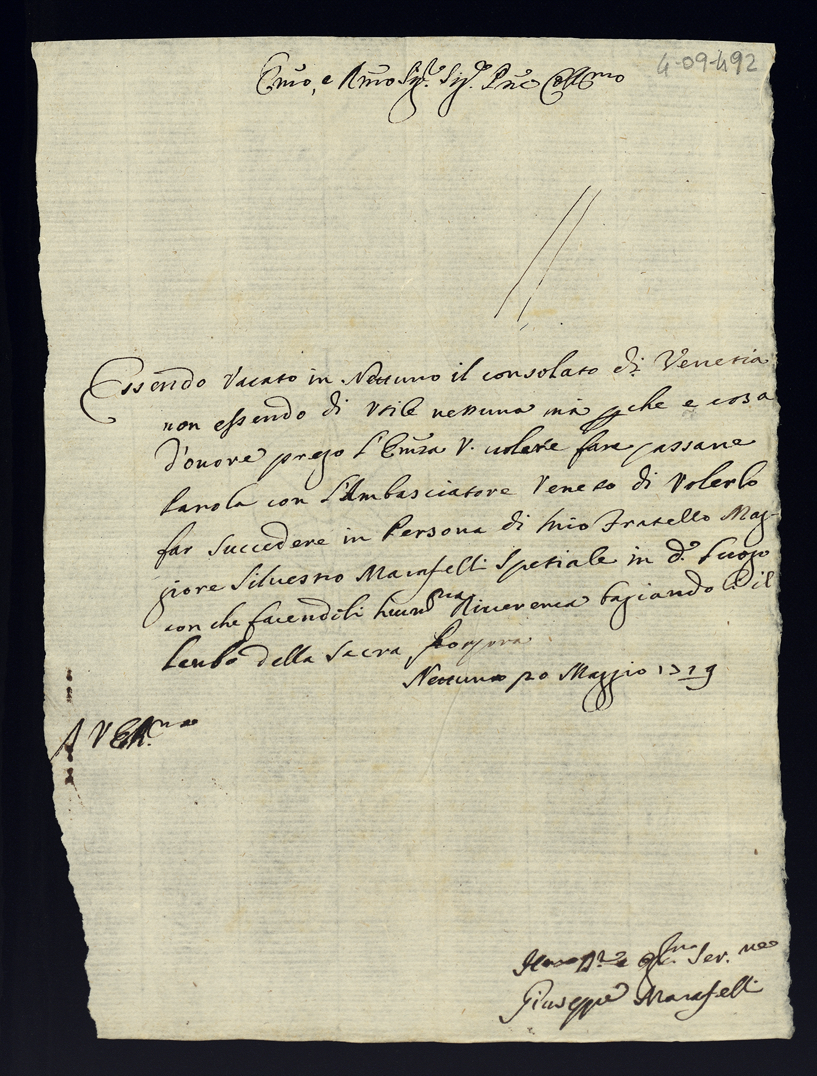 4-09-492
Emo, e Rmo Sigre. Sigr. Pne Collmo
Essendo Vacato in Nettuno il consolato di Venetia
non essendo di Utile nessuna mà perche e cosa
d'onore prego l'Emza V. volere fare passare
Parola con l'Ambasciatore Veneto di Volerlo
far succedere in Persona di mio Fratello Mag-
giore Silvestro Maraselli Spetiale in do. luogo
con che facendili humma Riverenza bagiando il
lembo della Sacra Porpora
Nettuno 20 Maggio 1719
A V Emma
Ser.
Giuseppe Maraselli